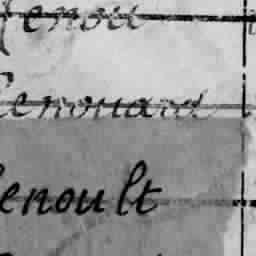 Renou
Renouard
Renoult